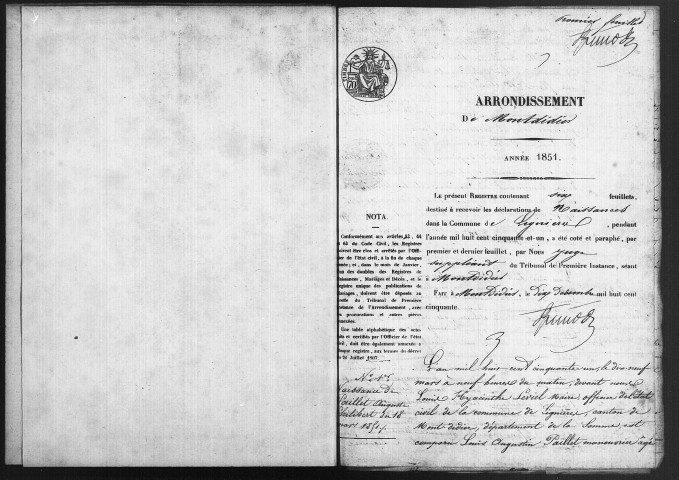 Premier feuillet
ARRONDISSEMENT
De Montdidier
ANNÉE 1851.
LE présent REGISTRE contenant six feuillets,
destiné à recevoir les déclarations de Naissances
dans la Commune de Lignières, pendant
l'année mil huit cent cinquante-et-un, a été coté et paraphé, par
premier et dernier feuillet, par Nous Juge
suppléant du Tribunal de Première Instance, séant
à Montdidier
FAIT à Montdidier, le dix Décembre mil huit cent
cinquante.
NOTA.
Conformément aux articles 43, 44
et 63 du Code Civil, les Registres
doivent être clos et arrêtés par l'Offi-
cier de l'état civil, à la fin de chaque
année; et, dans le mois de Janvier,
un des doubles des Registres de
Naissances, Mariages et Décès, et le
registre unique des publications de
Mariages, doivent être déposés au
Greffe du Tribunal de Première
Instance de l'Arrondissement, avec
les procurations et autres pièces
annexées.
Une table alphabétique des actes
et certifiés par l'Officier de l'état
civil, doit être également annexée à
chaque registre, aux termes du décret
du 20 Juillet 1807.
N° 1er
Naissance de
Paillet Auguste
Philibert du 18
mars 1851.
L'an mil huit cent cinquante un, le dix-neuf
mars à neuf heures du matin, devant nous
Louis Hyacinthe Maire, officier de l'état
civil de la commune de Lignières, canton de
Montdidier, département de la Somme, est
comparu Louis Augustin Paillet manouvrier âgé